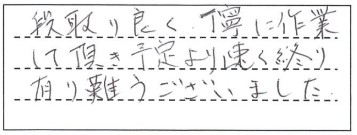 段取り良く、丁寧に作業
して頂き予定より速く終り
有り難うございました。